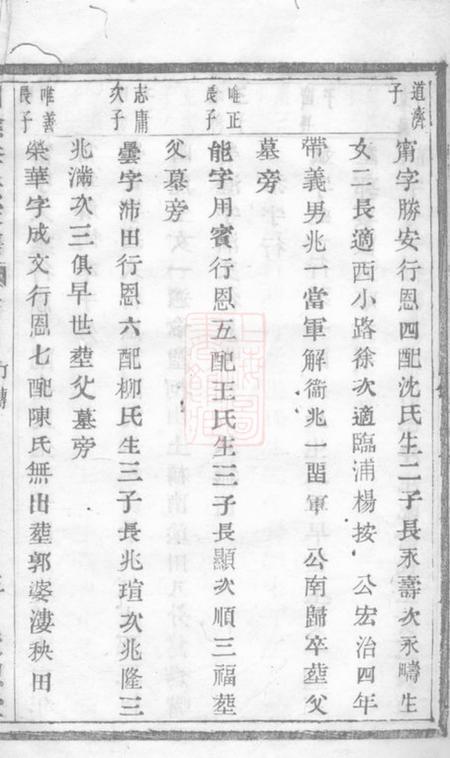 道濟子
甯字勝安行恩四配沈氏生二子長永壽次永疇生
女二長適西小路徐次適臨浦楊按　公宏治四年
帶義男兆一當軍解衞兆一畱軍公南歸卒塟父
墓旁
唯正長子
能字用賓行恩五配王氏生三子長顯次順三福塟
父墓旁
志庸次子
曇字沛田行恩六配柳氏生三子長兆瑄次兆隆三
兆滿次三俱早世塟父墓旁
唯善長子
榮華字成文行恩七配陳氏無出塟郭婆漊秧田